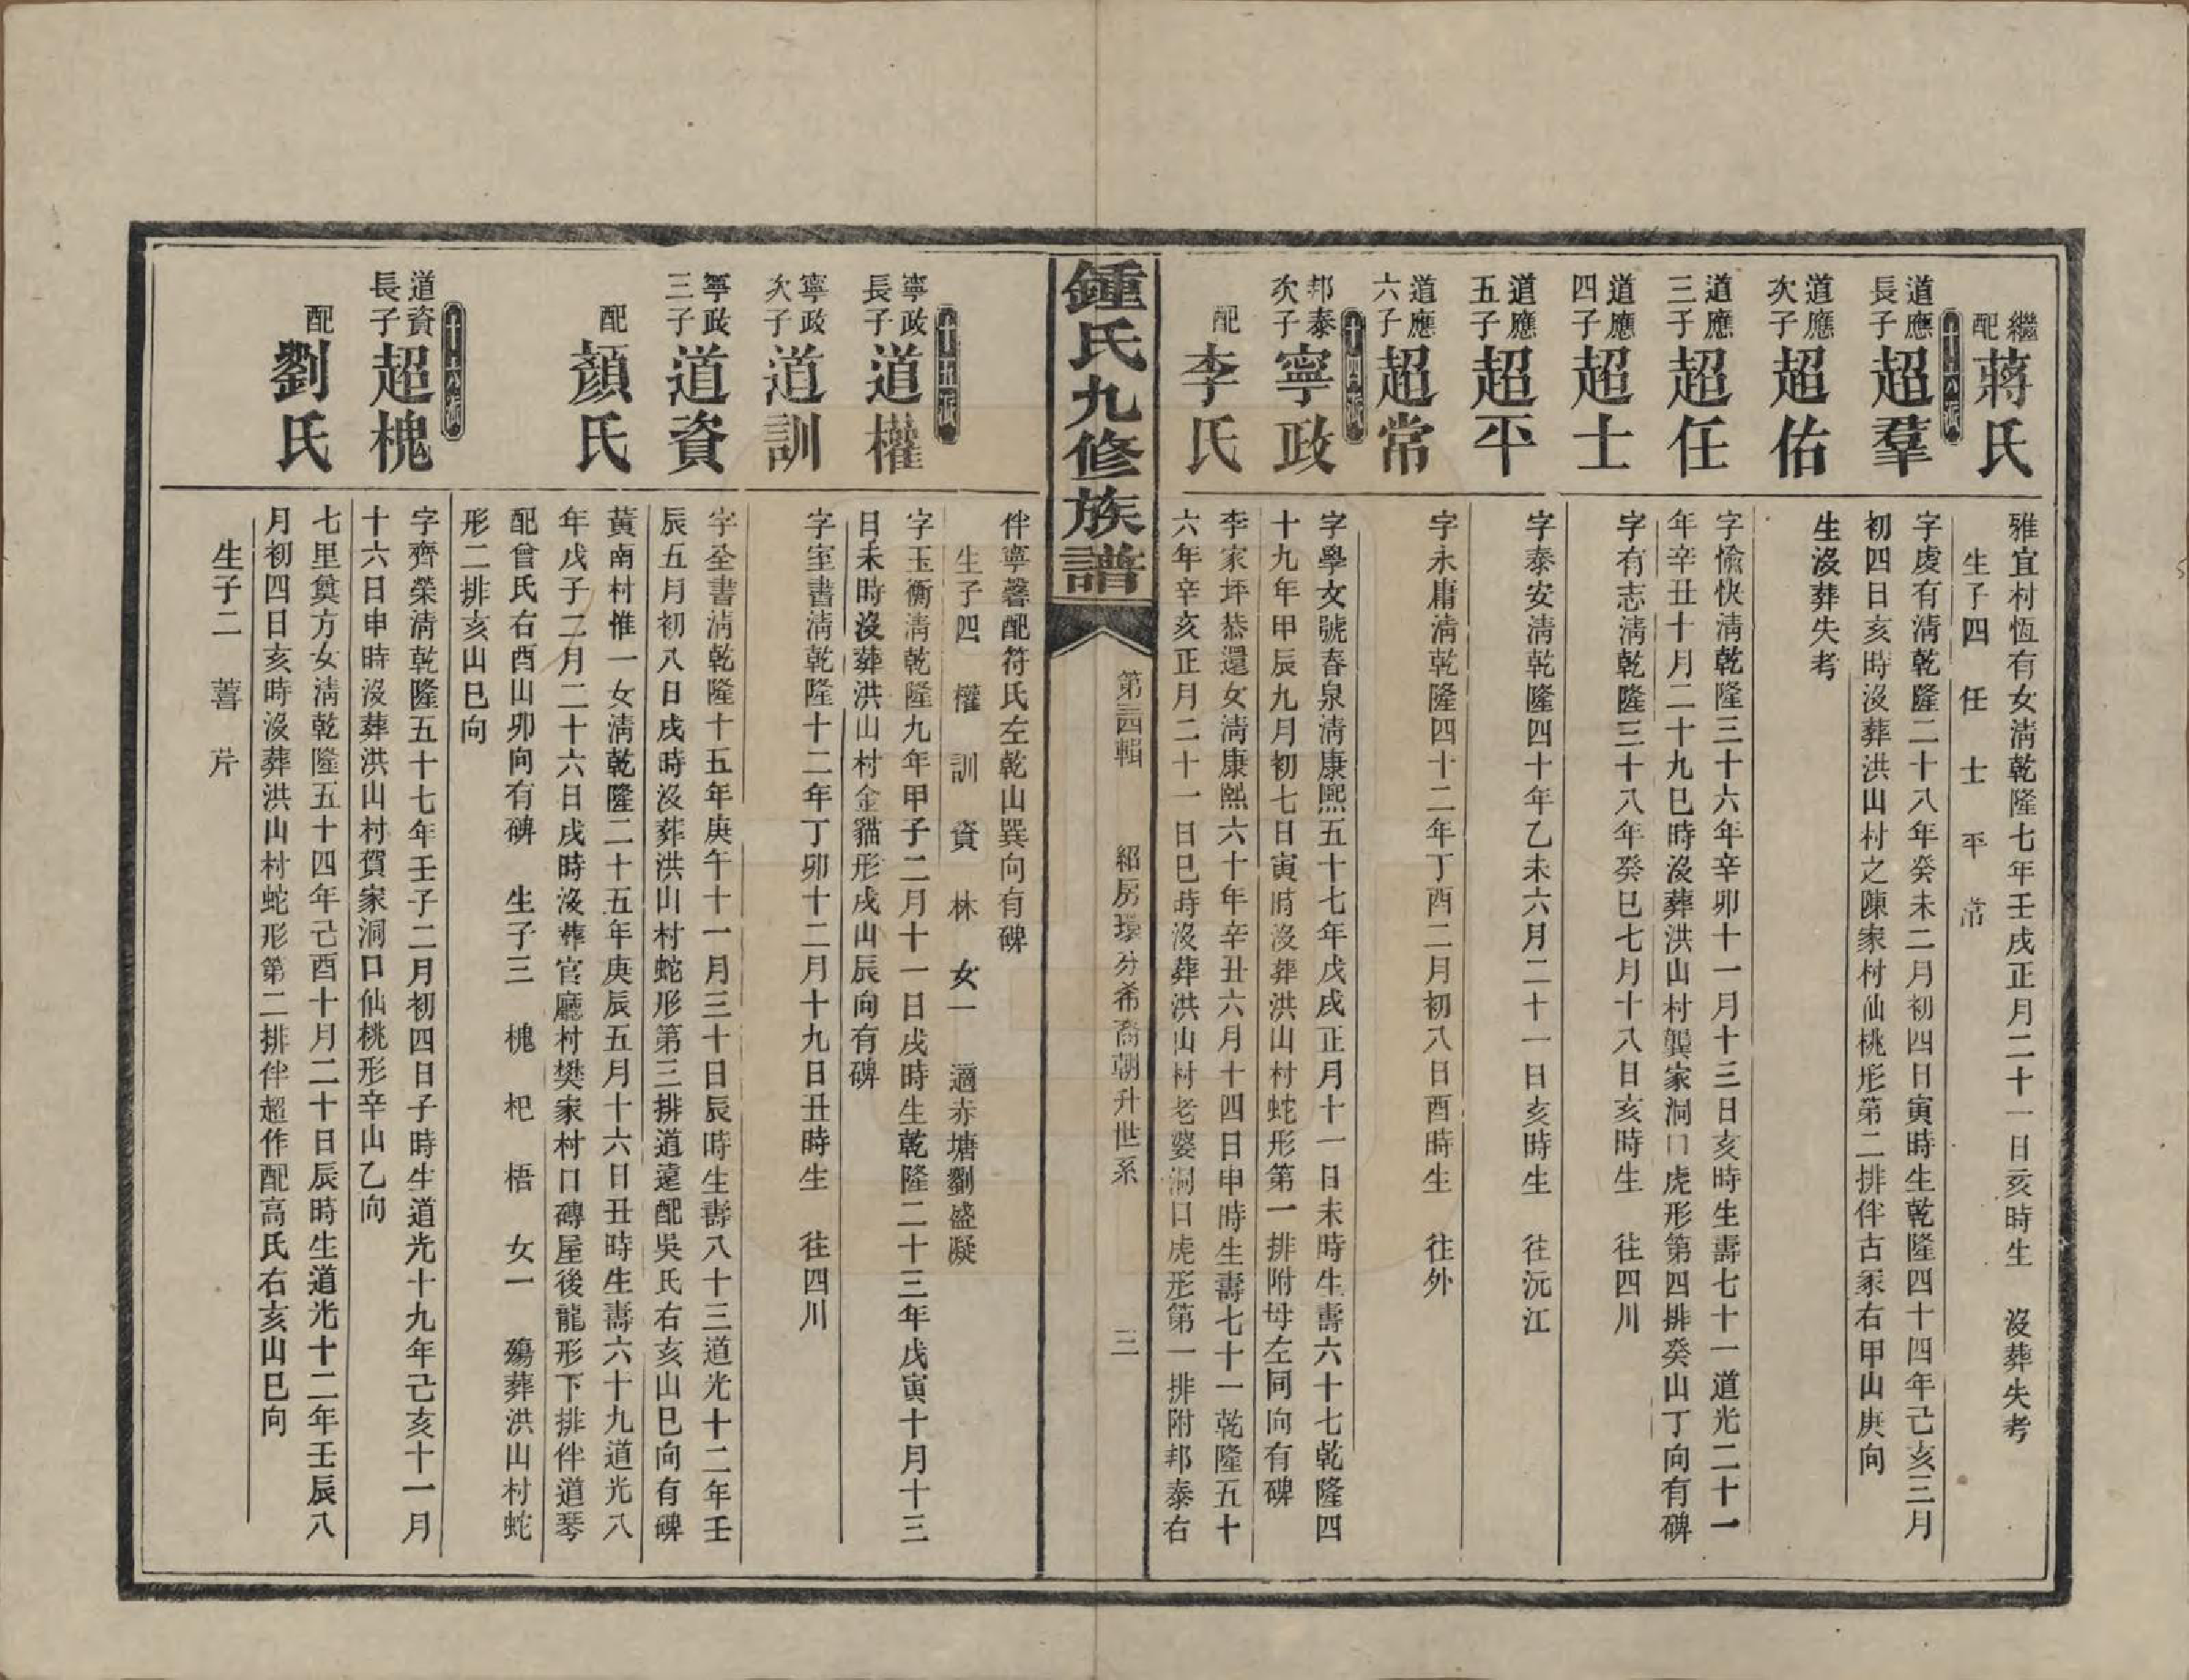 繼配 蔣氏
雅宜村恆有女清乾隆七年壬戌正月二十一日亥時生 沒葬失考
生子四 任 士 平 常
十六派
道應長子 超羣
字虔有清乾隆二十八年癸未二月初四日寅時生乾隆四十四年己亥三月
初四日亥時沒葬洪山村之陳家村仙桃形第二排伴古冢右甲山庚向
道應次子 超佑
生沒葬失考
道應三子 超任
字愉快清乾隆三十六年辛卯十一月十三日亥時生壽七十一道光二十一
年辛丑十月二十九巳時沒葬洪山村龔家洞口虎形第四排癸山丁向有碑
道應四子 超士
字有志清乾隆三十八年癸巳七月十八日亥時生 往四川
道應五子 超平
字泰安清乾隆四十年乙未六月二十一日亥時生 往沅江
道應六子 超常
字永庸清乾隆四十二年丁酉二月初八日酉時生 往外
十四派
邦泰次子 寧政
字學女號春泉清康熙五十七年戊戌正月十一日未時生壽六十七乾隆四
十九年甲辰九月初七日寅時沒葬洪山村蛇形第一排附母左同向有碑
配 李氏
李家坪恭還女清康熙六十年辛丑六月十四日申時生壽七十一乾隆五十
六年辛亥正月二十一日巳時沒葬洪山村老婆洞口虎形第一排附邦泰右
鍾氏九修族譜
第四輯 紹房環分希裔朝升世系 三
伴寧馨配符氏左乾山巽向有碑
生子四 權 訓 資 林 女一 適赤塘劉盛凝
十五派
寧政長子 道權
字玉衡清乾隆九年甲子二月十一日戌時生乾隆二十三年戊寅十月十三
日未時沒葬洪山村金貓形戌山辰向有碑
寧政次子 道訓
字室書清乾隆十二年丁卯十二月十九日丑時生 往四川
寧政三子 道資
字全書清乾隆十五年庚午十一月三十日辰時生壽八十三道光十二年壬
辰五月初八日戌時沒葬洪山村蛇形第三排道遠配吳氏右亥山巳向有碑
配 顏氏
黃南村惟一女清乾隆二十五年庚辰五月十六日丑時生壽六十九道光八
年戊子二月二十六日戌時沒葬官廳村樊家村口磚屋後龍形下排伴道琴
配曾氏右酉山卯向有碑 生子三 槐 杞 梧 女一 殤葬洪山村蛇
形二排亥山巳向
十六派
道資長子 超槐
字齊榮清乾隆五十七年壬子二月初四日子時生道光十九年己亥十一月
十六日申時沒葬洪山村賀家洞口仙桃形辛山乙向
配 劉氏
七里奠方女清乾隆五十四年己酉十月二十日辰時生道光十二年壬辰八
月初四日亥時沒葬洪山村蛇形第二排伴超作配高氏右亥山巳向
生子二 萫 芹